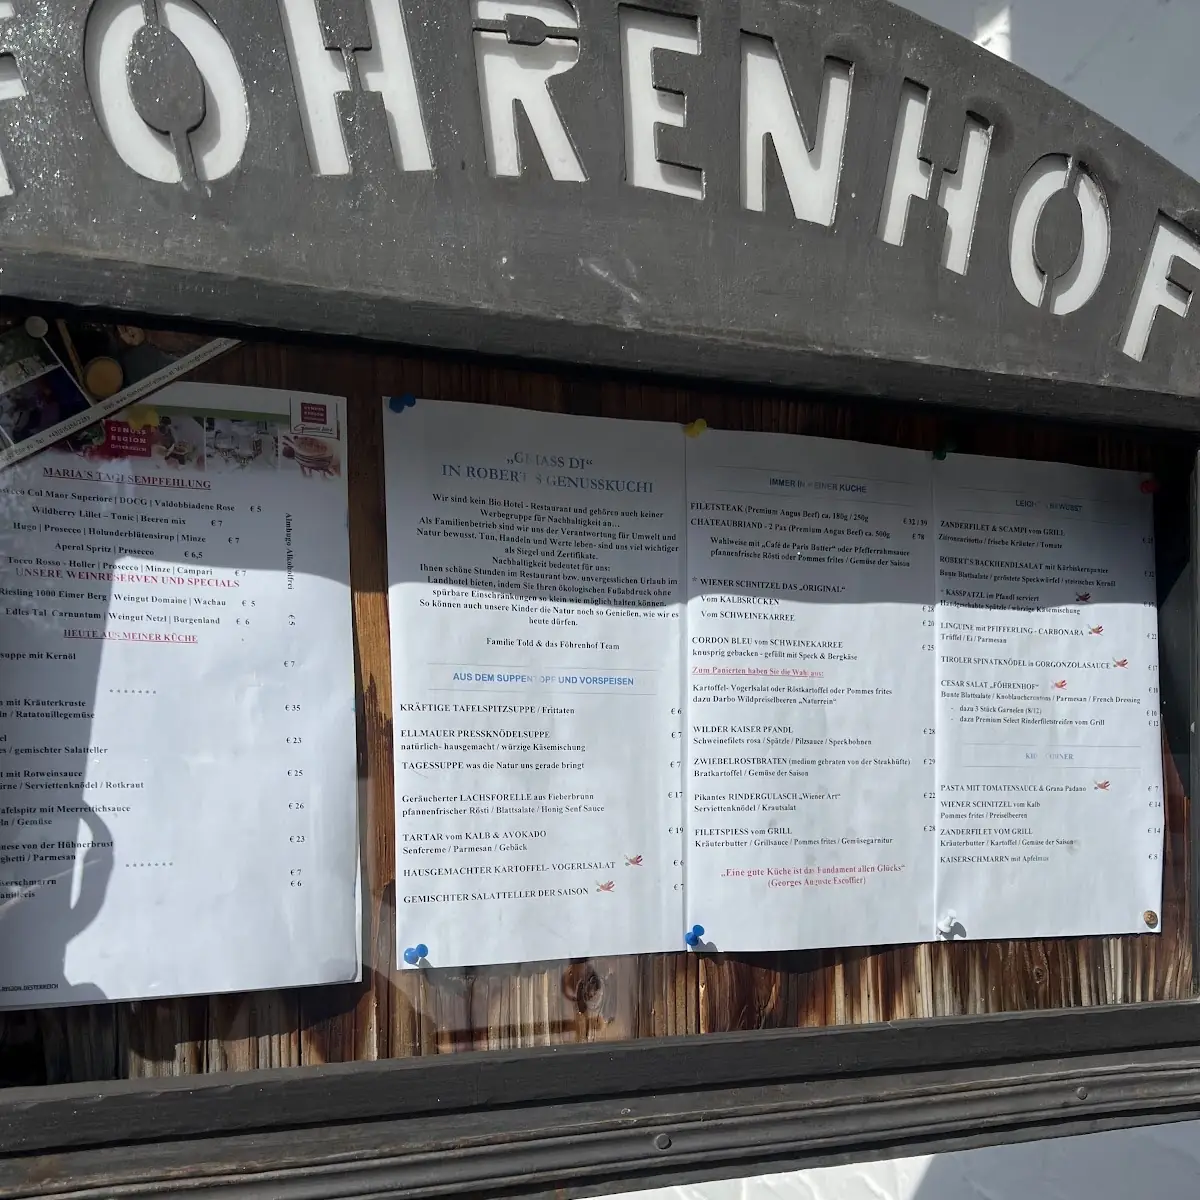 FÖHRENHOF
GENUSS
REGION
ÖSTERREICH
MARIA`S TAGESEMPFEHLUNG
Prosecco Col Maor Superiore | DOCG | Valdobbiadene Rose € 5
Wildberry Lillet – Tonic | Beeren mix € 7
Hugo | Prosecco | Holunderblütensirup | Minze € 7
Aperol Spritz | Prosecco € 6,5
Tocco Rosso - Holler | Prosecco | Minze | Campari € 7
Almhugo Alkoholfrei €5
UNSERE WEINRESERVEN UND SPECIALS
Riesling 1000 Eimer Berg | Weingut Domaine | Wachau € 5
Edles Tal Carnuntum | Weingut Netzl | Burgenland € 6
HEUTE AUS MEINER KÜCHE
suppe mit Kernöl
€ 7
mit Kräuterkruste
/ Ratatouillegemüse
€ 35
/ gemischter Salatteller
€ 23
mit Rotweinsauce
/ Serviettenknödel / Rotkraut
€ 25
Tafelspitz mit Meerrettichsauce
/ Gemüse
€ 26
von der Hühnerbrust
/ Parmesan
€ 23
Kaiserschmarrn € 7
€ 6
„GENIASS DI“
IN ROBERT`S GENUSSKUCHI
Wir sind kein Bio Hotel - Restaurant und gehören auch keiner
Werbegruppe für Nachhaltigkeit an…
Als Familienbetrieb sind wir uns der Verantwortung für Umwelt und
Natur bewusst. Tun, Handeln und Werte leben- sind uns viel wichtiger
als Siegel und Zertifikate.
Nachhaltigkeit bedeutet für uns:
Ihnen schöne Stunden im Restaurant bzw. unvergesslichen Urlaub im
Landhotel bieten, indem Sie Ihren ökologischen Fußabdruck ohne
spürbare Einschränkungen so klein wie möglich halten können.
So können auch unsere Kinder die Natur noch so Genießen, wie wir es
heute dürfen.
Familie Told & das Föhrenhof Team
AUS DEM SUPPENTOPF UND VORSPEISEN
KRÄFTIGE TAFELSPITZSUPPE / Frittaten € 6
ELLMAUER PRESSKNÖDELSUPPE € 7
natürlich- hausgemacht / würzige Käsemischung
TAGESSUPPE was die Natur uns gerade bringt € 7
Geräucherter LACHSFORELLE aus Fieberbrunn € 17
pfannenfrischer Rösti / Blattsalate / Honig Senf Sauce
TARTAR vom KALB & AVOKADO € 19
Senfcreme / Parmesan / Gebäck
HAUSGEMACHTER KARTOFFEL- VOGERLSALAT € 6
GEMISCHTER SALATTELLER DER SAISON € 7
IMMER IN MEINER KÜCHE
FILETSTEAK (Premium Angus Beef) ca. 180g / 250g € 32 / 39
CHATEAUBRIAND - 2 Pax (Premium Angus Beef) ca. 500g € 78
Wahlweise mit „Café de Paris Butter“ oder Pfefferrahmsauce
pfannenfrische Rösti oder Pommes frites / Gemüse der Saison
* WIENER SCHNITZEL DAS „ORIGINAL“
Vom KALBSRÜCKEN € 28
Vom SCHWEINEKARREE € 20
CORDON BLEU vom SCHWEINEKARREE € 25
knusprig gebacken - gefüllt mit Speck & Bergkäse
Zum Panierten haben Sie die Wahl aus:
Kartoffel- Vogerlsalat oder Röstkartoffel oder Pommes frites
dazu Darbo Wildpreiselbeeren „Naturrein“
WILDER KAISER PFANDL € 28
Schweinefilets rosa / Spätzle / Pilzsauce / Speckbohnen
ZWIEBELROSTBRATEN (medium gebraten von der Steakhüfte) € 29
Bratkartoffel / Gemüse der Saison
Pikantes RINDERGULASCH „Wiener Art“ € 22
Serviettenknödel / Krautsalat
FILETSPIESS vom GRILL € 28
Kräuterbutter / Grillsauce / Pommes frites / Gemüsegarnitur
„Eine gute Küche ist das Fundament allen Glücks“
(Georges Auguste Escoffier)
ZANDERFILET & SCAMPI vom GRILL
Zitronenrisotto / frische Kräuter / Tomate
ROBERT`S BACKHENDLSALAT mit Kürbiskernpanier
Bunte Blattsalate / geröstete Speckwürfel / steirisches Kernöl
* KASSPATZL im Pfandl serviert
Handgeschabte Spätzle / würzige Käsemischung
LINGUINE mit PFIFFERLING - CARBONARA € 22
Trüffel / Ei / Parmesan
TIROLER SPINATKNÖDEL in GORGONZOLASAUCE € 17
CESAR SALAT „FÖHRENHOF“
Bunte Blattsalate / Knoblauchcroutons / Parmesan / French Dressing
- dazu 3 Stück Garnelen (8/12) € 10
- dazu Premium Select Rinderfiletstreifen vom Grill € 12
PASTA MIT TOMATENSAUCE & Grana Padano € 7
WIENER SCHNITZEL vom Kalb € 14
Pommes frites / Preiselbeeren
ZANDERFILET VOM GRILL € 14
Kräuterbutter / Kartoffel / Gemüse der Saison
KAISERSCHMARRN mit Apfelmus € 8